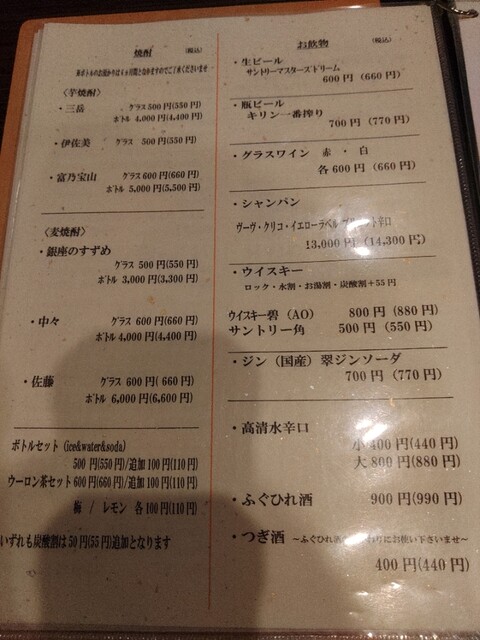 焼酎 (税込)
※ボトルのお預かりは6ヶ月間となりますのでご了承くださいませ
〈芋焼酎〉
・三岳 グラス 500円(550円)
ボトル 4,000円(4,400円)
・伊佐美 グラス 500円(550円)
・富乃宝山 グラス 600円(660円)
ボトル 5,000円(5,500円)
〈麦焼酎〉
・銀座のすずめ
グラス 500円(550円)
ボトル 3,000円(3,300円)
・中々 グラス 600円(660円)
ボトル 4,000円(4,400円)
・佐藤 グラス 600円( 660円)
ボトル 6,000円(6,600円)
ボトルセット (ice&water&soda)
500円(550円)/追加100円(110円)
ウーロン茶セット 600円(660円)/追加100円(110円)
梅 / レモン 各100円(110円)
いずれも炭酸割は50円(55円)追加となります
お飲物 (税込)
・生ビール
サントリーマスターズドリーム
600円 (660円)
・瓶ビール
キリン一番搾り
700円 (770円)
・グラスワイン 赤 ・ 白
各600円 (660円)
・シャンパン
ヴーヴ・クリコ・イエローラベル 辛口
13,000円 (14,300円)
・ウイスキー
ロック・水割・お湯割・炭酸割+55円
ウイスキー碧 (AO) 800円 (880円)
サントリー角 500円 (550円)
・ジン (国産) 翠ジンソーダ
700円 (770円)
・高清水辛口
小400円(440円)
大800円(880円)
・ふぐひれ酒 900円(990円)
・つぎ酒 ~ふぐひれ酒 にお使い下さいませ~
400円(440円)